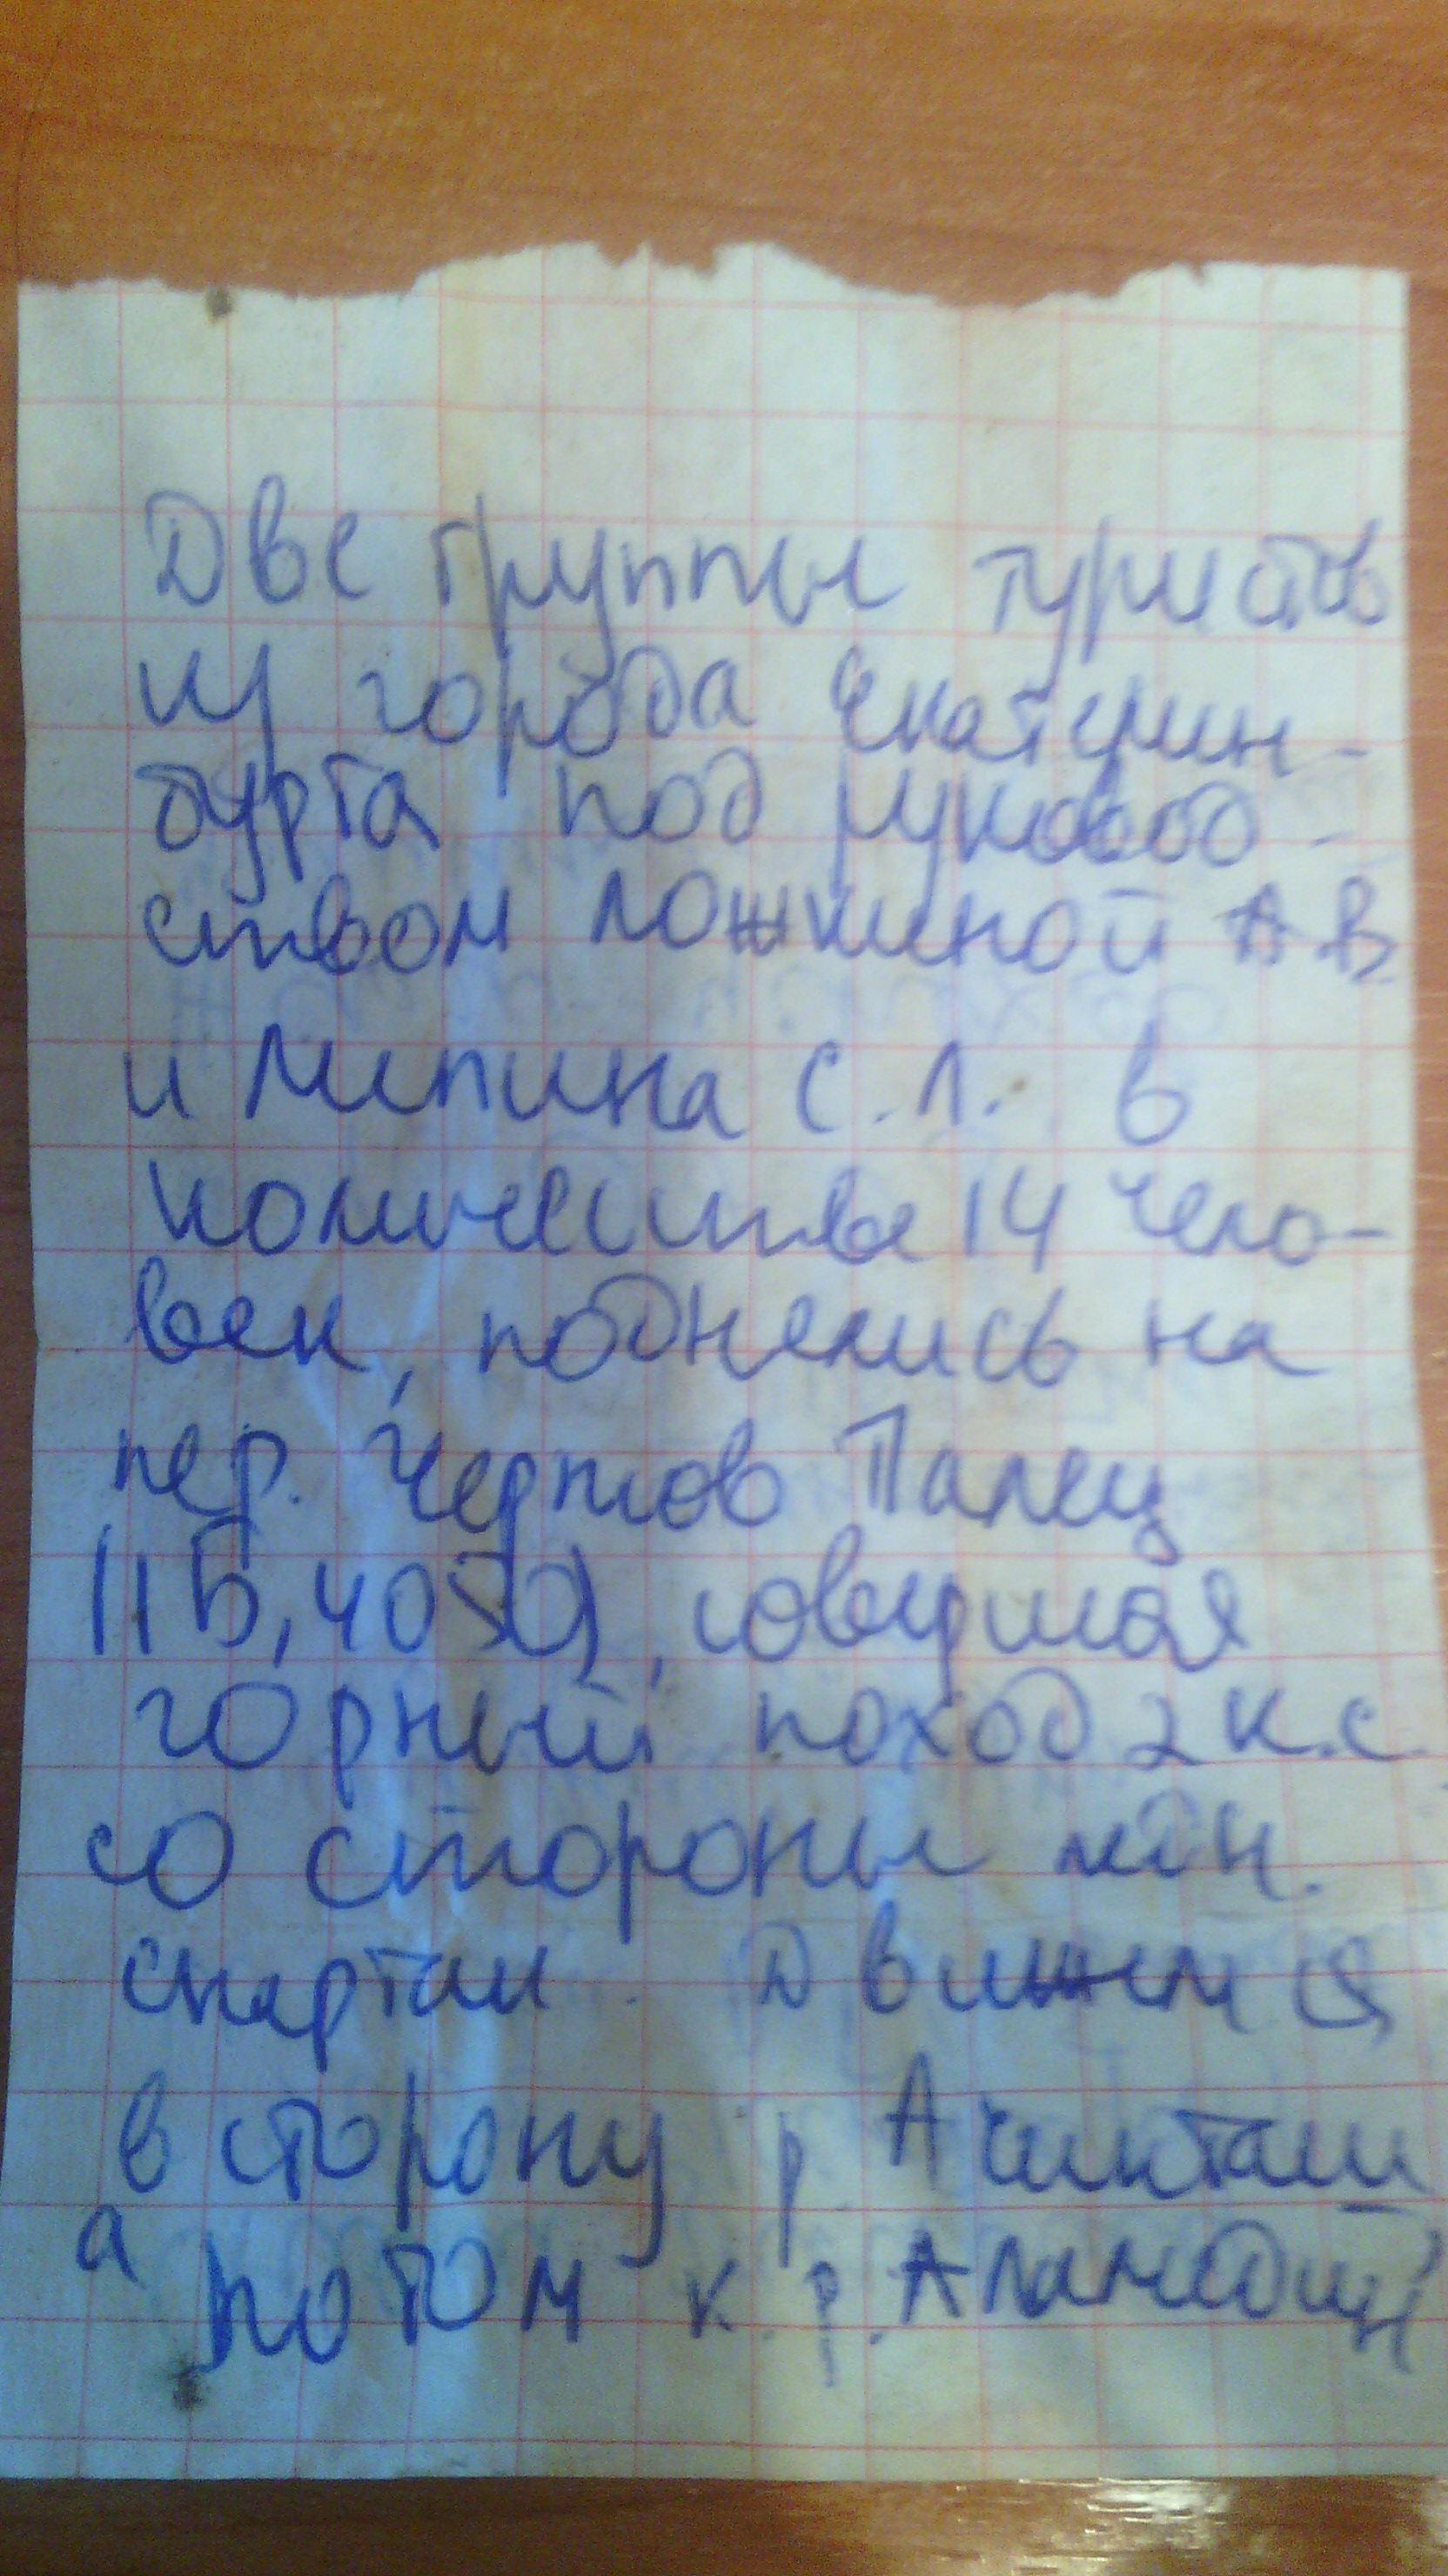 Две группы туристов
из города Екатерин-
бурга под руковод-
ством Ложкиной А.В.
и Липина С.Л. в
количестве 14 чело-
век, поднелись на
пер. Чертов Палец
(1Б, 4050), совершая
горный поход 2 к.с.
со стороны мтн.
спартак. Движемся
в сторону р. Ачикташ,
а потом к р. Аламедин